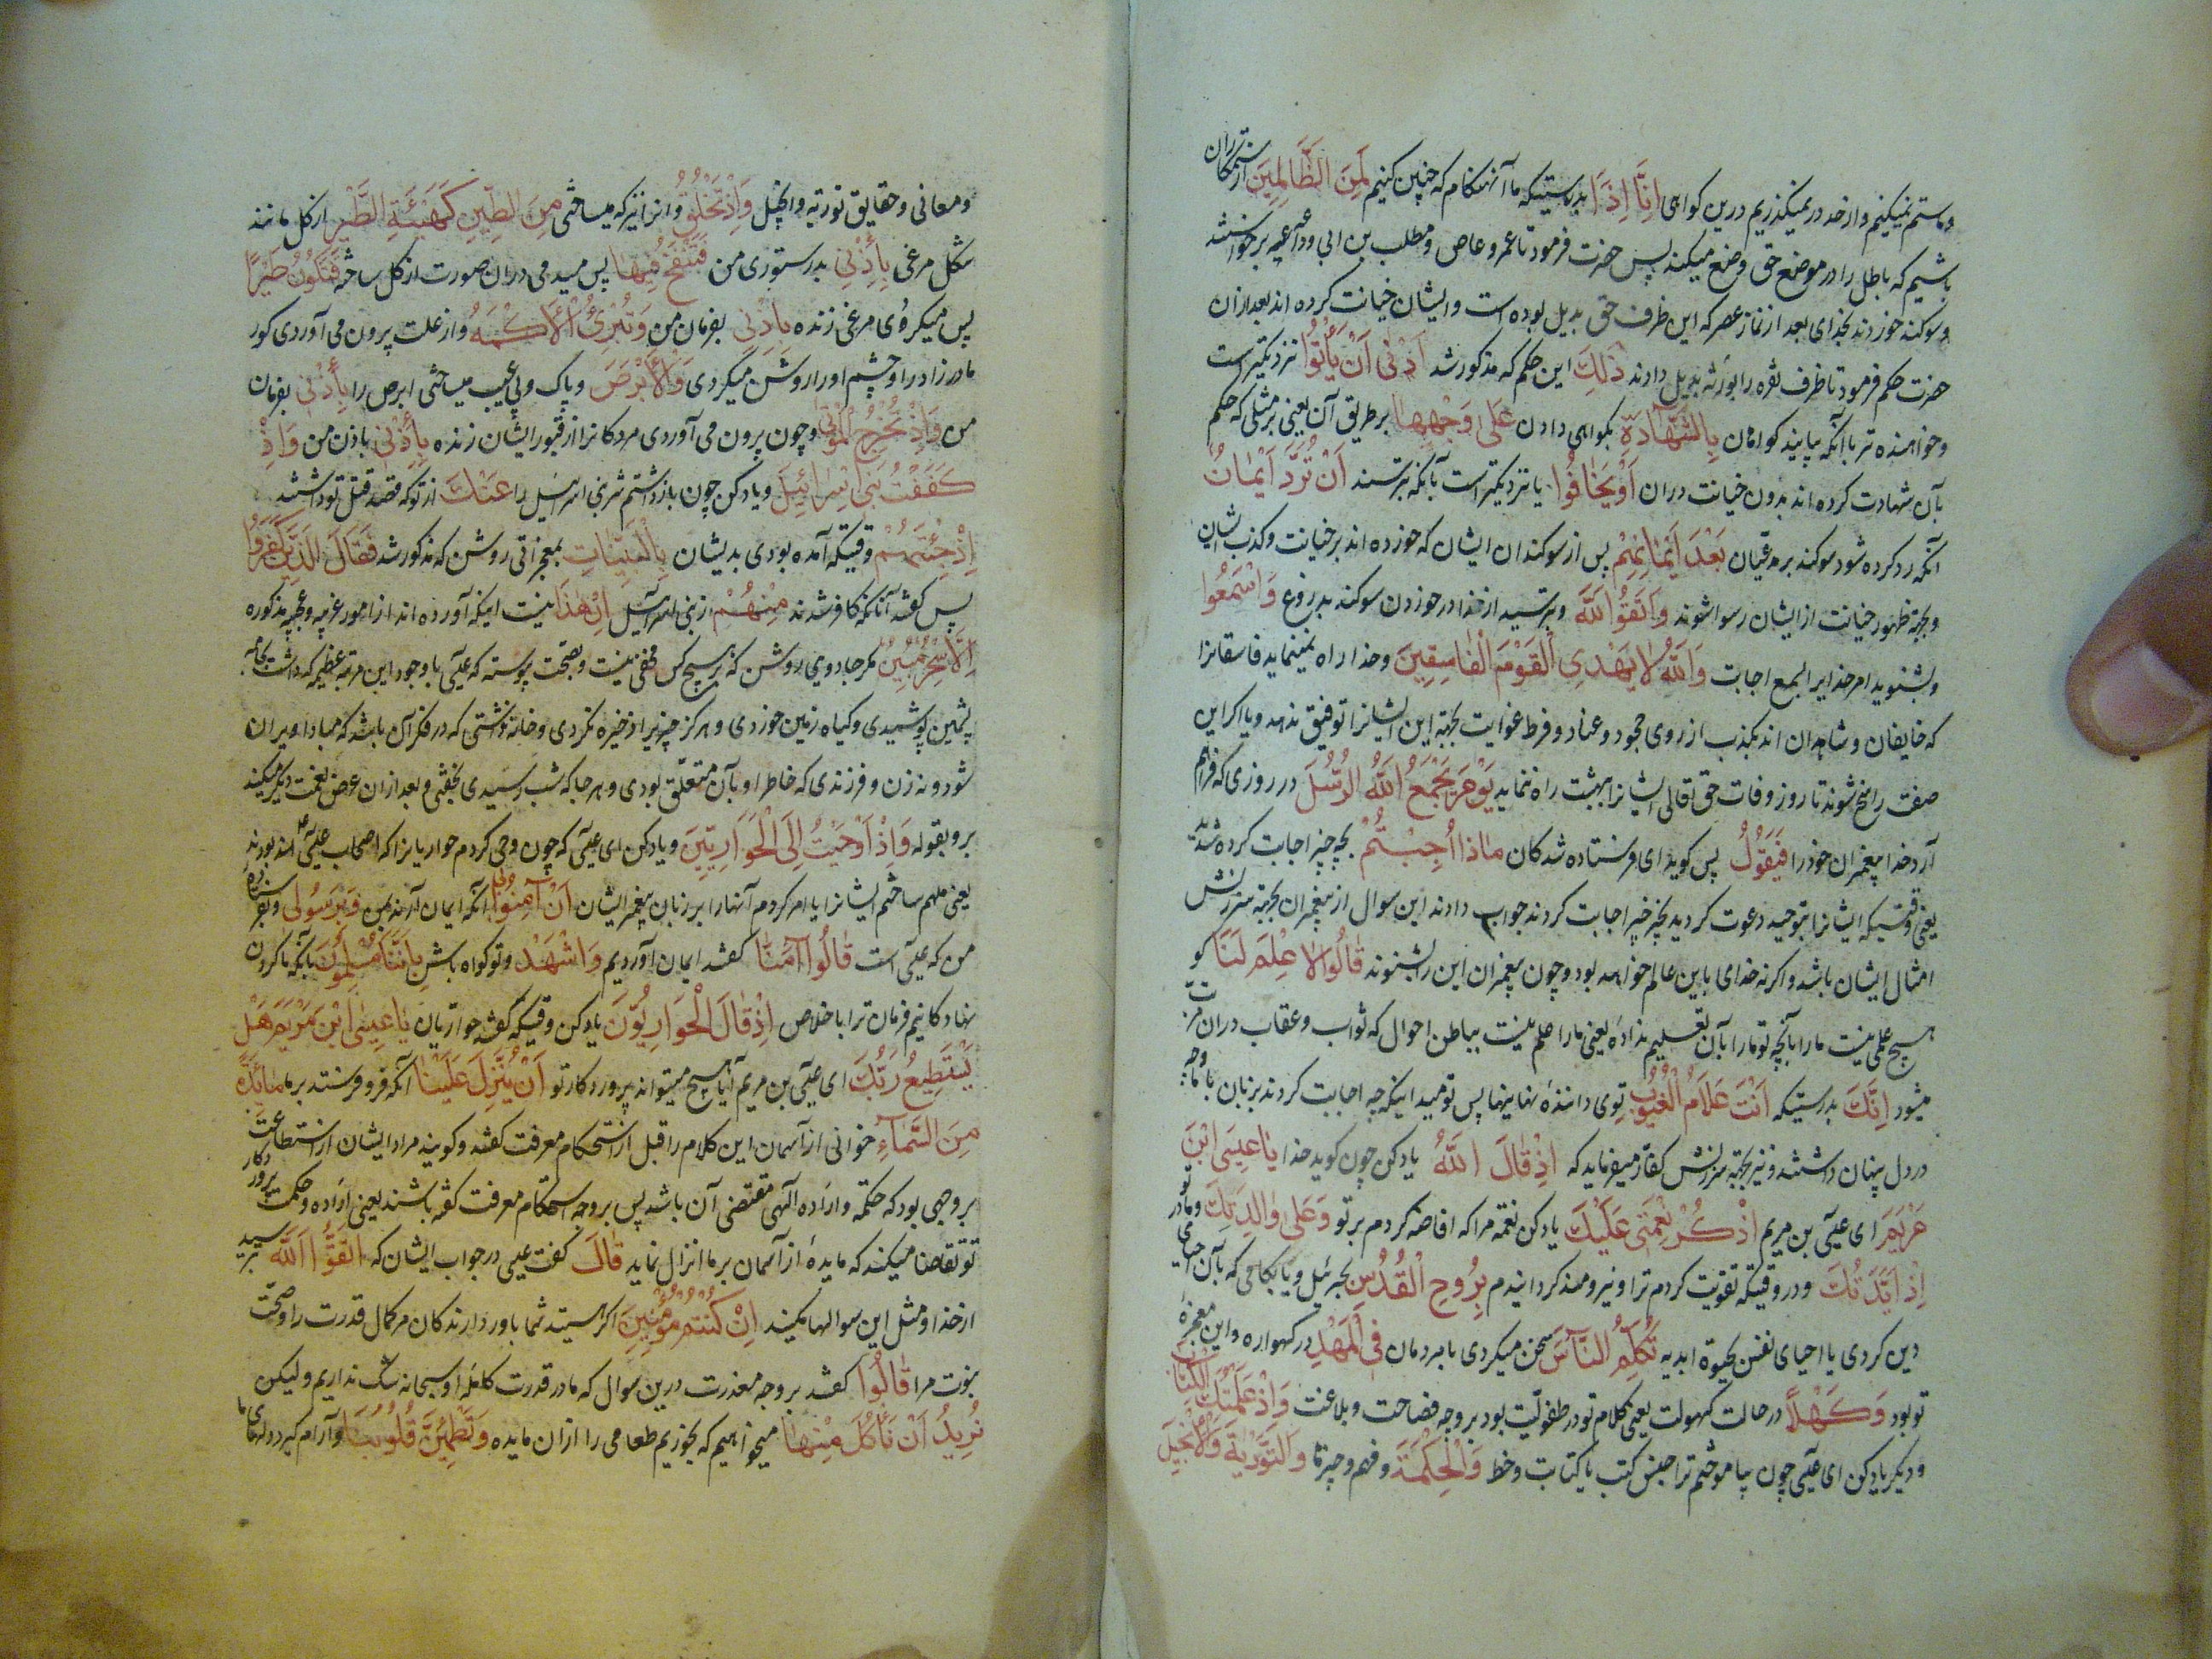 و ما ستم نمیکنیم و از حد در نمیگذریم درین کواهی اِنَّا اِذًا بدرستیکه ما آنهنکام که چنین کنیم لَمِنَ الظَّالِمِینَ از ستمکاران
باشیم که باطل را در موضع حق وضع میکنند پس حضرت فرمود تا عمرو عاص و مطلب بن ابی وداعه برخواستند
و سوکند خوردند بخدای بعد از نماز عصر که این ظرف حق بدیل بوده است و ایشان خیانت کرده اند بعد ازان
حضرت حکم فرمود تا ظرف نقره را بورثه بدیل دادند ذٰلِكَ این حکم که مذکور شد اَدْنٰی اَنْ یَأْتُوا نزدیکتر است
و خواهنده تر باآنکه بیایند کواهان بِالشَّهَادَةِ بکواهی دادن عَلٰی وَجْهِهَا بر طریق آن یعنی بر مثلی که حکم
بآن شهادت کرده اند بدون خیانت دران اَوْ یَخَافُوا یا نزدیکتر است بآنکه بترسند اَنْ تُرَدَّ اَیْمَانٌ
آنکه رد کرده شود سوکند بر مدعیان بَعْدَ اَیْمَانِهِمْ پس از سوکندان ایشان که خورده اند بر خیانت و کذب ایشان
و بجهة ظهور خیانت از ایشان رسوا شوند وَاتَّقُوا اللّٰهَ و بترسید از خدا در خوردن سوکند بدروغ وَاسْمَعُوا
و بشنوید امر خدایرا بسمع اجابت وَاللّٰهُ لَا یَهْدِی الْقَوْمَ الْفَاسِقِینَ و خدا راه نمینماید فاسقانرا
که خایفان و شاهدان اند بکذب از روی جحود و عناد و فرط غوایت بجهة این ایشانرا توفیق ندهد و یا اکر این
صفت راسخ شوند تا روز وفات حق تعالی ایشانرا ببهشت راه ننماید یَوْمَ یَجْمَعُ اللّٰهُ الرُّسُلَ در روزی که فراهم
آرد خدا پیغمبران خود را فَیَقُولُ پس کوید ای فرستاده شدکان مَاذَا اُجِبْتُمْ بچه چیز اجابت کرده شدید
یعنی وقتیکه ایشانرا بتوحید دعوت کردید بچه چیز اجابت کردند جواب دادند این سوال از پیغمبران بجهة سرزنش
امثال ایشان باشد و اکرنه خدای باین عالم خواهد بود و چون پیغمبران این را بشنوند قَالُوا لَا عِلْمَ لَنَا کو
هیچ علمی نیست ما را بآنچه تو ما را بآن تعلیم نداده یعنی ما را علم نیست بباطن احوال که ثواب و عقاب دران مرتب
میشود اِنَّكَ بدرستیکه اَنْتَ عَلَّامُ الْغُیُوبِ توی داننده نهانیها پس تو میدانیکه چه اجابت کردند بزبان با ما و چه
در دل پنهان داشتند و نیز بجهة سرزنش کفار میفرماید که اِذْ قَالَ اللّٰهُ یاد کن چون کوید خدا یَا عِیسَی ابْنَ
مَرْیَمَ ای عیسی بن مریم اذْكُرْ نِعْمَتِی عَلَیْكَ یاد کن نعمة مرا که افاضه کردم بر تو وَعَلٰی وَالِدَتِكَ و مادر تو
اِذْ اَیَّدْتُكَ و در وقتیکه تقویت کردم ترا و نیرومند کردانیدم بِرُوحِ الْقُدُسِ بجبرئیل و یا بکلامی که بآن احیای
دین کردی یا احیای نفس بحیوة ابدیه تُكَلِّمُ النَّاسَ سخن میکردی با مردمان فِی الْمَهْدِ در کهواره و این معجزۀ
تو بود وَكَهْلًا در حالت کهولت یعنی کلام تو در طفولیت بود بر وجه فصاحت و بلاغت وَاِذْ عَلَّمْتُكَ الْكِتَابَ
و دیکر یاد کن ای عیسی چون بیاموختم ترا جنس کتب یا کتابت و خط وَالْحِكْمَةَ و فهم و چیزها وَالتَّوْرٰیةَ وَالْاِنْجِیلَ
و معانی و حقایق توریة و انجیل وَاِذْ تَخْلُقُ و انرا نیز که میساختی مِنَ الطِّینِ كَهَیْئَةِ الطَّیْرِ از کل مانند
شکل مرغی بِاِذْنِی بدستوری من فَتَنْفُخُ فِیهَا پس میدمی دران صورت از کل ساخته فَتَكُونُ طَیْرًا
پس میکردی مرغی زنده بِاِذْنِی بفرمان من وَتُبْرِئُ الْاَكْمَهَ و از علت بیرون می آوردی کور
مادرزاد را و چشم او را روشن میکردی وَالْاَبْرَصَ و پاک و بی عیب میساختی ابرص را بِاِذْنِی بفرمان
من وَاِذْ تُخْرِجُ الْمَوْتٰی و چون بیرون می آوردی مردکانرا از قبور ایشان زنده بِاِذْنِی باذن من وَاِذْ
كَفَفْتُ بَنِی اِسْرَائِیلَ و یاد کن چون باز داشتم شر بنی اسرائیل را عَنْكَ از تو که قصد قتل تو داشتند
اِذْ جِئْتَهُمْ وقتیکه آمده بودی بدیشان بِالْبَیِّنَاتِ بمعجزاتی روشن که مذکور شد فَقَالَ الَّذِینَ كَفَرُوا
پس کفتند آنانکه کافر شدند مِنْهُمْ از بنی اسرائیل اِنْ هٰذَا نیست اینکه آورده اند از امور غریبه و عجیبه مذکوره
اِلَّا سِحْرٌ مُبِینٌ مکر جادویی روشن که بر هیچ کس مخفی نیست و بصحت پیوسته که عیسی با وجود این مرتبه عظیم که داشت جامه
پشمین پوشیدی و کیاه زمین خوردی و هرکز چیزیرا ذخیره نکردی و خانه نداشتی که در فکر آن باشد که مبادا ویران
شود و نه زن و فرزندی که خاطر او بآن متعلق بودی و هر جا که شب رسیدی بخفتی و بعد ازان عرض نعمت دیکر میکند
برو بقوله وَاِذْ اَوْحَیْتُ اِلَی الْحَوَارِیِّینَ و یاد کن ای عیسی که چون وحی کردم حواریانرا که اصحاب عیسی بودند
یعنی ملهم ساختم ایشانرا یا امر کردم آنها را بر زبان پیغمبر ایشان اَنْ اٰمِنُوا بِی آنکه ایمان آرند بمن وَبِرَسُولِی و بفرستاده
من که عیسی است قَالُوا اٰمَنَّا کفتند ایمان آوردیم وَاشْهَدْ و تو کواه باش بِاَنَّنَا مُسْلِمُونَ بآنکه ما کردن
نهادکانیم فرمان ترا باخلاص اِذْ قَالَ الْحَوَارِیُّونَ یاد کن وقتیکه کفتند حواریان یَا عِیسَی ابْنَ مَرْیَمَ هَلْ
یَسْتَطِیعُ رَبُّكَ ای عیسی بن مریم آیا هیچ میتواند پروردکار تو اَنْ یُنَزِّلَ عَلَیْنَا آنکه فرو فرستد بر ما مَائِدَةً
مِنَ السَّمَاءِ خوانی از آسمان این کلام را قبل از استحکام معرفت کفتند و کویند مراد ایشان از استطاعت
بر وجهی بود که حکمة و اراده الهی مقتضی آن باشد پس بر وجه استحکام معرفت کفته باشند یعنی اراده و حکمت پروردکار
تو تقاضا میکند که مایدۀ از آسمان بر ما انزال نماید قَالَ کفت عیسی در جواب ایشان که اتَّقُوا اللّٰهَ بترسید
از خدا و مثل این سوالها مکنید اِنْ كُنْتُمْ مُؤْمِنِینَ اکر هستید شما باور دارندکان مر کمال قدرت را و صحت
نبوت مرا قَالُوا کفتند بر وجه معذرت درین سوال که ما در قدرت کاملۀ او سبحانه شک نداریم و لیکن
نُرِیدُ اَنْ نَأْكُلَ مِنْهَا میخواهیم که بخوریم طعامی را ازان مایده وَتَطْمَئِنَّ قُلُوبُنَا و آرام کیرد دلهای ما